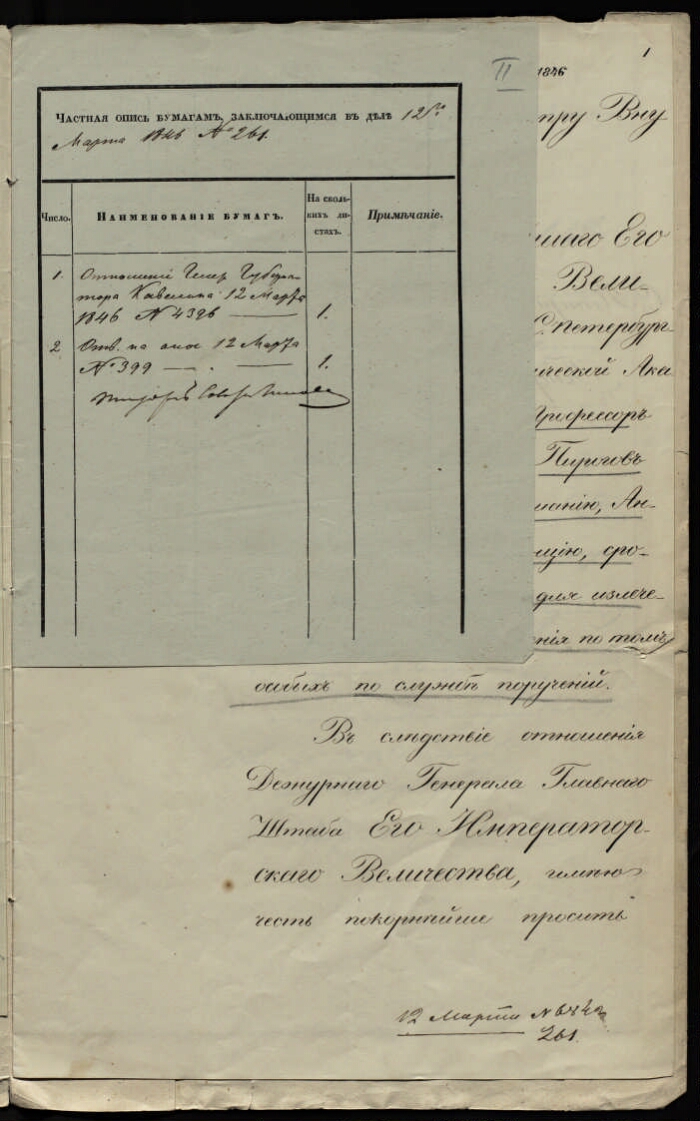 II
Частная опись бумагамъ, заключающимся въ дѣлѣ 12го
Марта 1846 № 261.
Число.
Наименованіе бумагъ.
На сколькихъ листахъ.
Примѣчаніе.
1. Отношеніе Генер. Губерна-
тора Кавелина 12 Марта
1846 № 4396 — 1.
2 Отв. на оное 12 Марта
№ 399 — . — 1.
1
1846
тру Вну
шаго Его
Вели-
С.петербург
ической Ака
Профессоръ
Пироговъ
манію, Ан-
цію, сро-
для излече-
нія по томъ
особыхъ по службѣ порученій.
Въ слѣдствіе отношенія
Дежурнаго Генерала Главнаго
Штаба Его Император-
скаго Величества, имѣю
честь покорнѣйше просить
12 Марта
261.